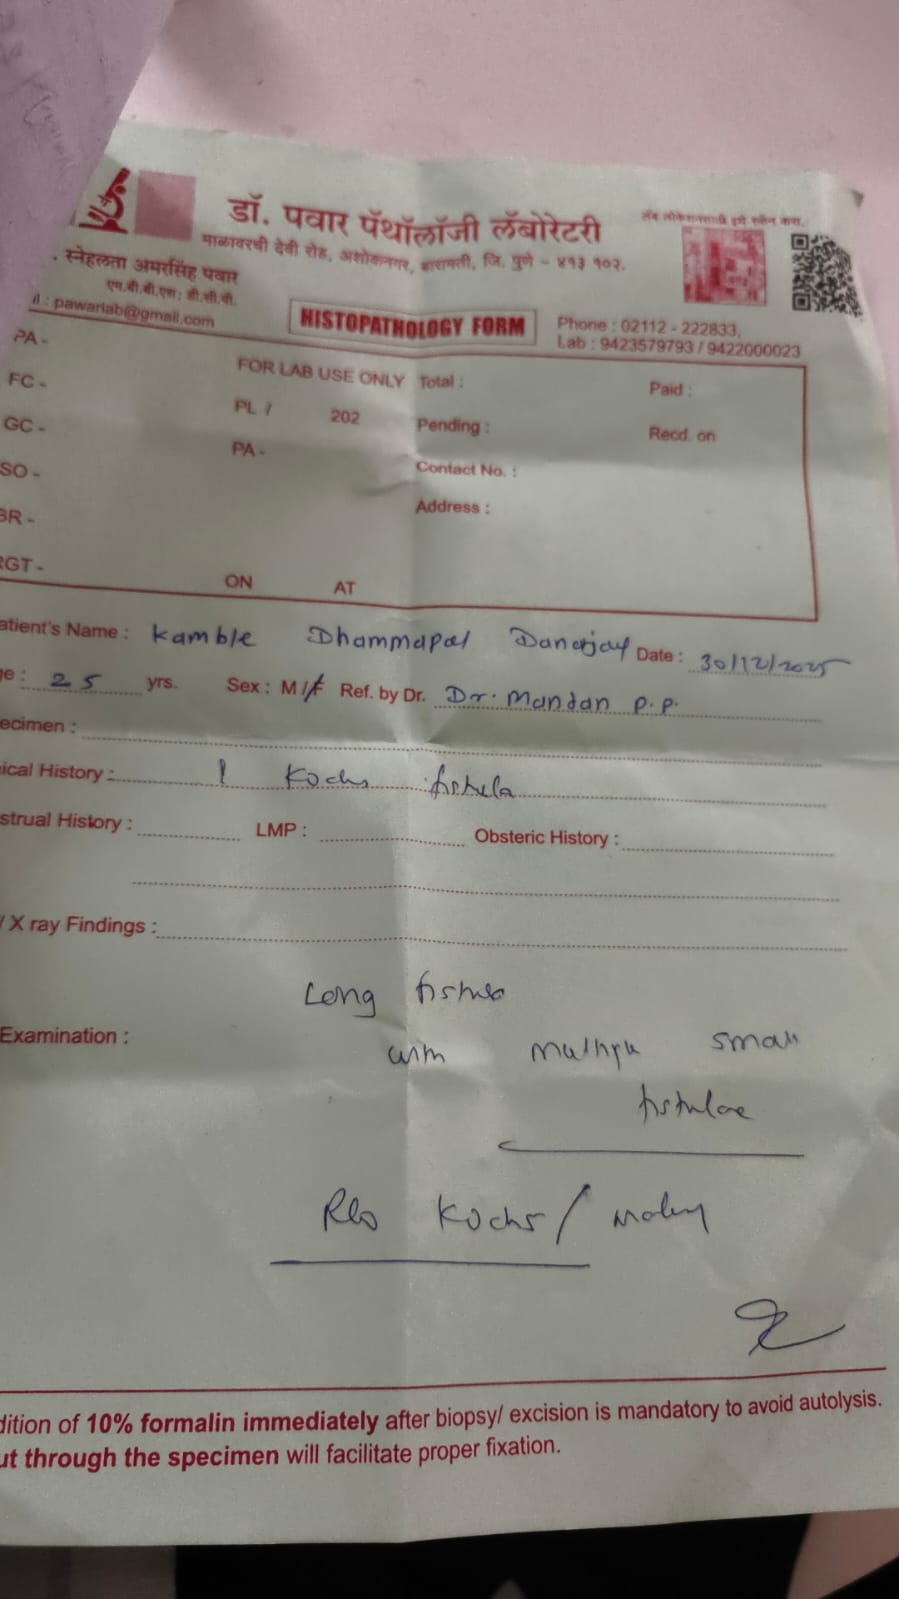 डॉ. पवार पॅथॉलॉजी लॅबोरेटरी
माळावरची देवी रोड, अशोकनगर, बारामती, जि. पुणे - ४१३ १०२.
. स्नेहलता अमरसिंह पवार
एम.बी.बी.एस; डी.सी.पी.
il : pawarlab@gmail.com
HISTOPATHOLOGY FORM
Phone : 02112 - 222833,
Lab : 9423579793 / 9422000023
PA -
FC -
GC -
SO -
BR -
RGT -
FOR LAB USE ONLY
PL / 202
PA -
ON AT
Total : Paid :
Pending : Recd. on
Contact No. :
Address :
atient's Name : Kamble Dhammapal Date : 30/12/2025
ge : 25 yrs. Sex : M / F Ref. by Dr. Dr. Mandan P.P.
ecimen :
ical History : Kochs fistula
strual History : LMP : Obsteric History :
/ X ray Findings :
Long fistula
Examination :
with multiple small
fistulae
R/o Kochs /
dition of 10% formalin immediately after biopsy/ excision is mandatory to avoid autolysis.
ut through the specimen will facilitate proper fixation.